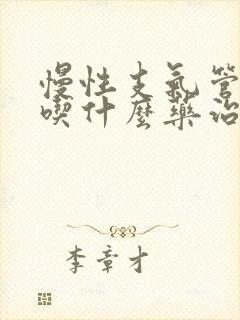 慢性支氣管
喫什麼藥治
李章才